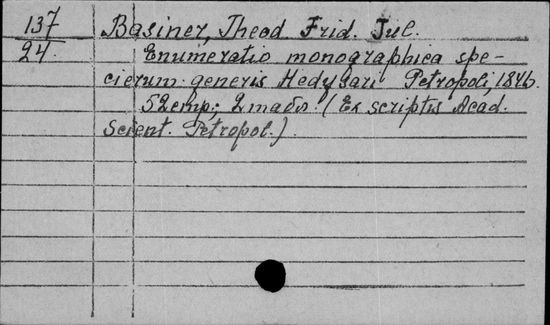 137
24.
Basiner, Theod. Frid. Jul.
Enumeratio monographica spe-
cierum generis Hedysari Petropoli, 1846.
52 стр.; 2 табл. (Ex scriptis Acad.
Scient. Petropol.)